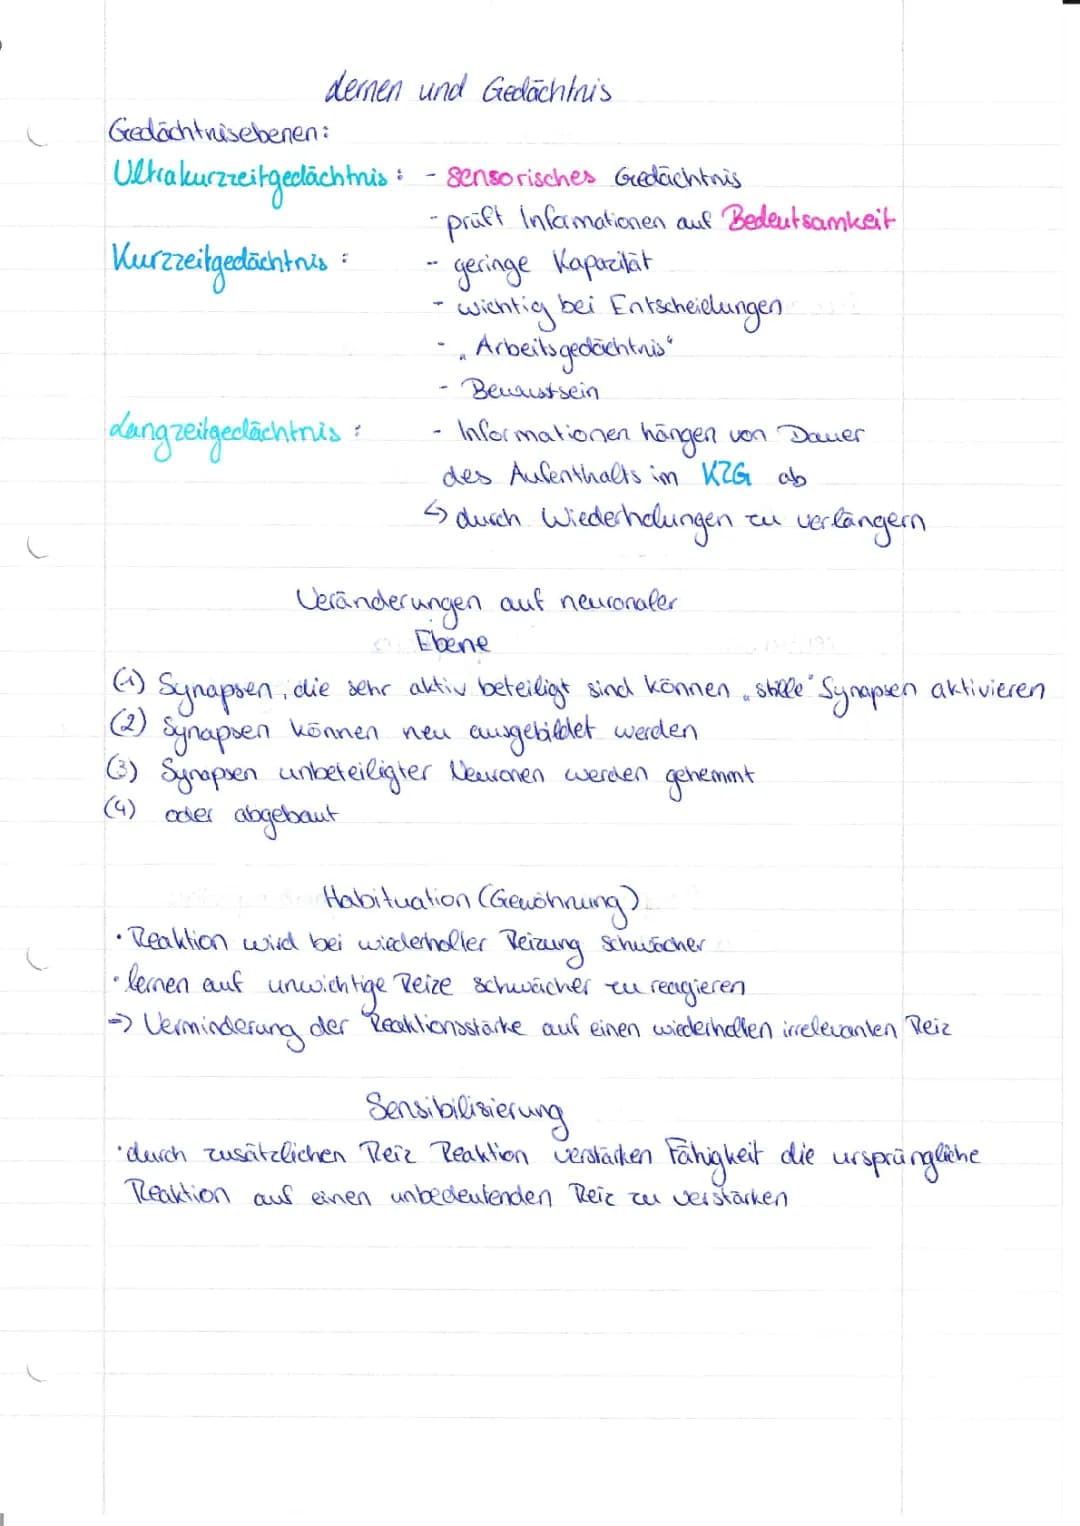 Lernen und Gedächtnis
Gedächtnisebenen:
Ultrakurzzeitgedächtnis: - sensorisches Gedächtnis
- prüft Informationen auf Bedeutsamkeit
Kurzzeitgedächtnis: - geringe Kapazität
- wichtig bei Entscheidungen
- „Arbeitsgedächtnis“
- Bewusstsein
Langzeitgedächtnis: - Informationen hängen von Dauer
des Aufenthalts im KZG ab
↳ durch Wiederholungen zu verlängern
Veränderungen auf neuronaler
Ebene
(1) Synapsen, die sehr aktiv beteiligt sind können „stille“ Synapsen aktivieren
(2) Synapsen können neu ausgebildet werden
(3) Synapsen unbeteiligter Neuronen werden gehemmt
(4) oder abgebaut
Habituation (Gewöhnung)
• Reaktion wird bei wiederholter Reizung schwächer
• lernen auf unwichtige Reize schwächer zu reagieren
→ Verminderung der Reaktionsstärke auf einen wiederholten irrelevanten Reiz
Sensibilisierung
• durch zusätzlichen Reiz Reaktion verstärken Fähigkeit die ursprüngliche
Reaktion auf einen unbedeutenden Reiz zu verstärken